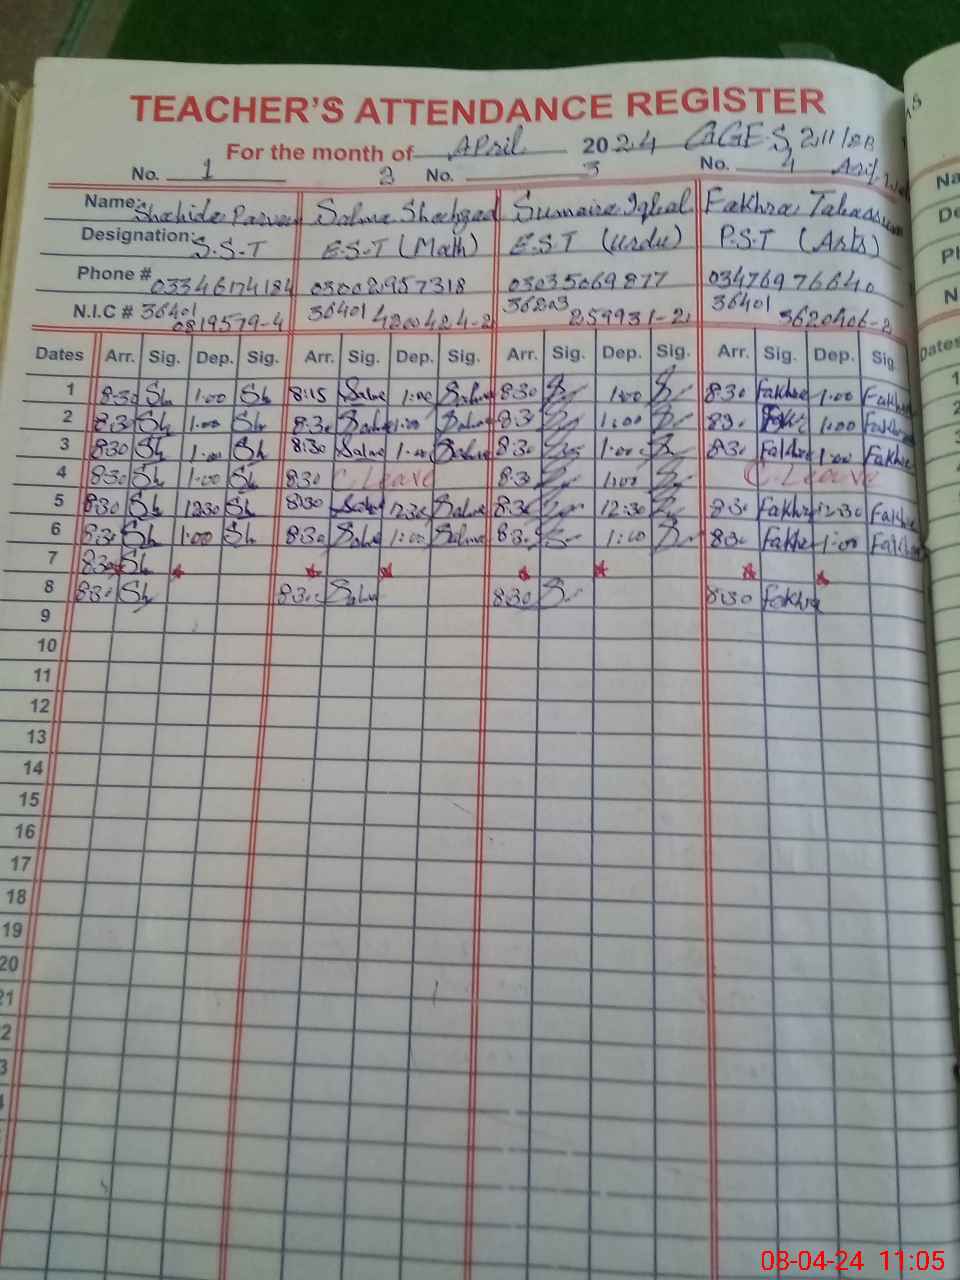 TEACHER'S ATTENDANCE REGISTER
For the month of April 2024 GGES, 211/EB
No. 1 2 No. 3 No. 4
Name: Shahida Parveen Salma Shahzad Sumaira Iqbal Fakhra Tabassum
Designation: S.S.T E.S.T (Math) E.S.T (Urdu) P.S.T (Arts)
Phone # 03346174184 03008195 7318 03035069877 03476976640
N.I.C # 36401 36401 36203 36401
0819579-4 4200424-2 259931-2 3620406-2
Dates Arr. Sig. Dep. Sig. Arr. Sig. Dep. Sig. Arr. Sig. Dep. Sig. Arr. Sig. Dep. Sig.
1 8:30 Sh 1:00 Sh 8:15 Salma 1:00 Salma 8:30 1:00 8:30 Fakhra 1:00 Fakhra
2 8:30 Sh 1:00 Sh 8:30 Salma 1:00 Salma 8:30 1:00 8:30 Fakhra 1:00 Fakhra
3 8:30 Sh 1:00 Sh 8:30 Salma 1:00 Salma 8:30 1:00 8:30 Fakhra 1:00 Fakhra
4 8:30 Sh 1:00 Sh 8:30 C.Leave 8:30 1:00 C.Leave
5 8:30 Sh 12:30 Sh 8:30 Salma 12:30 Salma 8:30 12:30 8:30 Fakhra 12:30 Fakhra
6 8:30 Sh 1:00 Sh 8:30 Salma 1:00 Salma 8:30 1:00 8:30 Fakhra 1:00 Fakhra
7 8:30 Sh
8 8:30 Sh 8:30 Salma 8:30 8:30 Fakhra
9
10
11
12
13
14
15
16
17
18
19
20
21
08-04-24 11:05